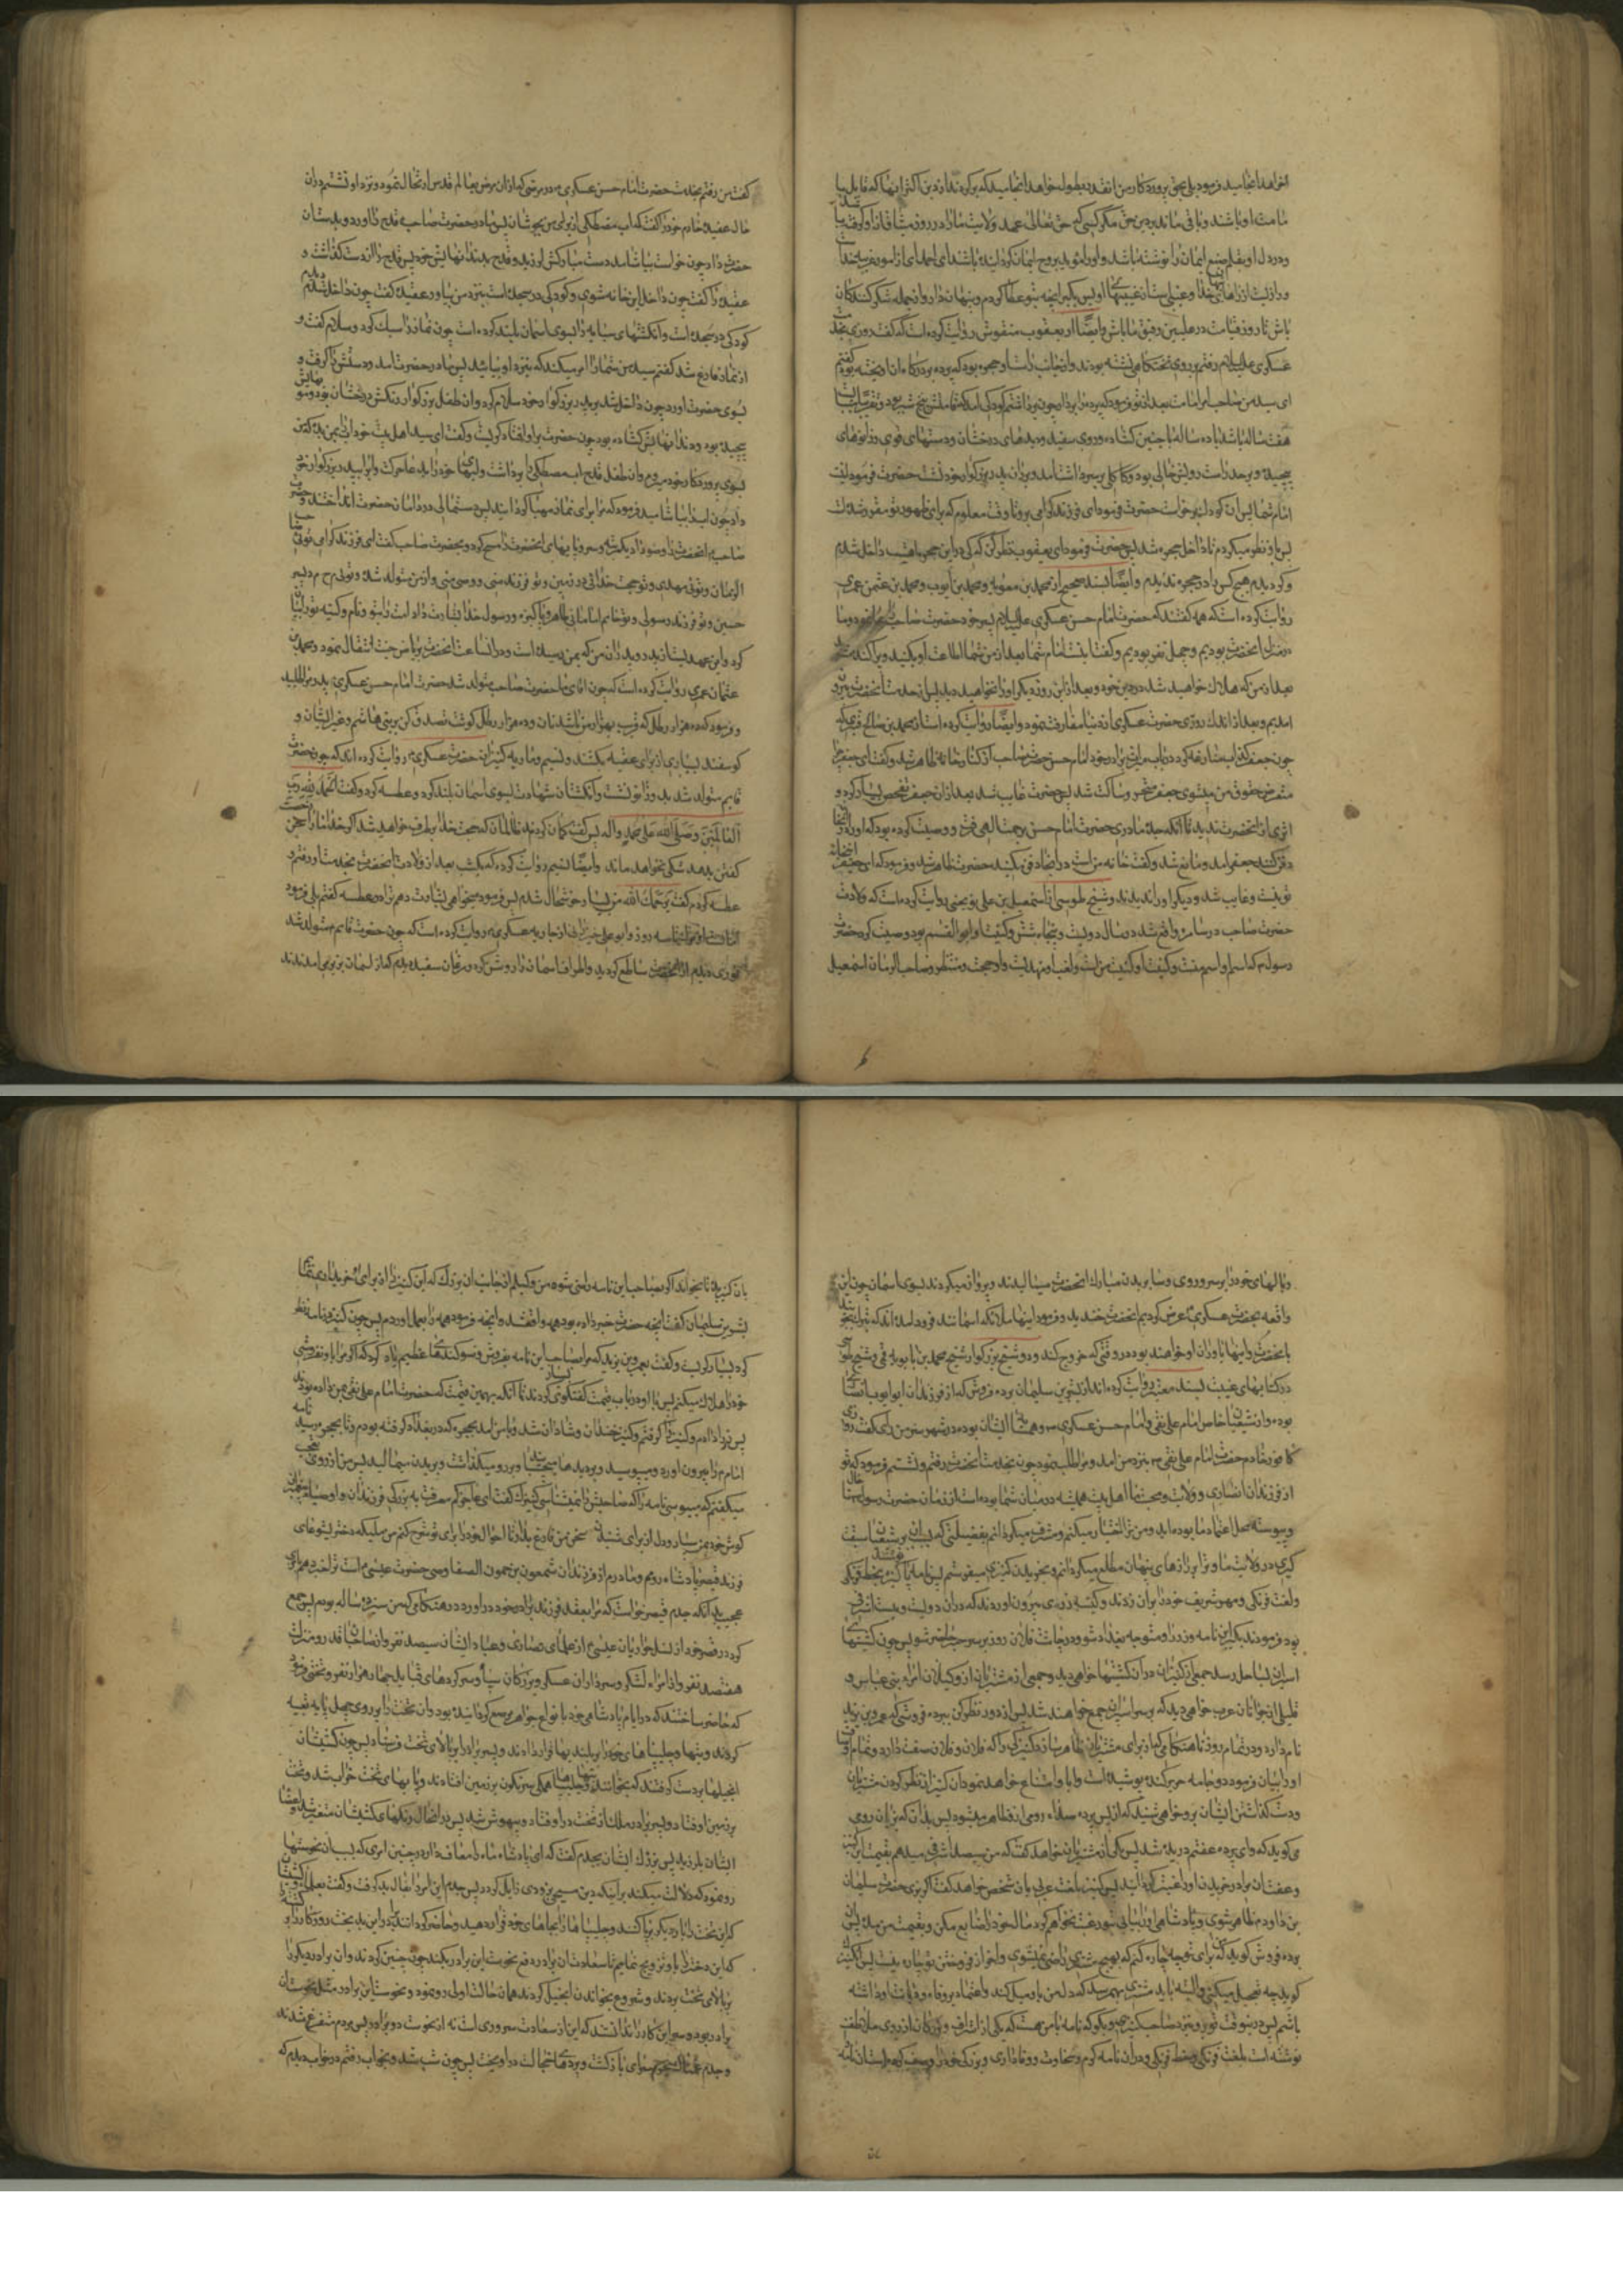 خواهد انجامید فرمود بلی بحق پروردکار من انقدر بطول خواهد انجامید که برکردند از دین اکثر اینها که قایل با
مامت او باشند و باقی نماند بر دین حق مکر کسی که حق تعالی عهد ولایت ما را در روز میثاق از او کرفته باشد
و در دل او بقلم صنع ایمان را نوشته باشد و او را مؤید بروح ایمان کردانیده باشد ای احمد این از امور غریبه خدا
و رازیست از رازهای خدا و غیبی است از غیبهای او پس بکیر انچه بتو عطا کردم و پنهان دار و از جمله شکر کنندکان
باش تا روز قیامت در علیین رفیق ما باشی و ایضا از یعقوب منقوش روایت کرده است که کفت روزی بخدمت
عسکری علیه السلام رفتم بر روی تختکاهی نشسته بودند و از جانب راست او حجره بود که پرده بر درکاه ان اویخته بود کفتم
ای سید من صاحب امر امامت بعد از تو کیست فرمود که پرده را بردار چون برداشتم کودکی
هفت ساله یا ده ساله با جبین کشاده و روی سفید و دیدهای درخشان و دستهای قوی و زانوهای
پیچیده و بر خد راست رویش خالی بود و کاکلی بر سر داشت امد و بر ران پدر بزرکوار خود نشست حضرت فرمود اینست
امام شما پس ان کودک برخواست حضرت فرمود ای فرزند کرامی برو تا وقت معلوم که برای ظهور تو مقرر شده است
پس باو نظر میکردم تا داخل حجره شد پس حضرت فرمود ای یعقوب نظر کن که کی در این حجره است داخل شدم
و کردیدم هیچ کس را در حجره ندیدم و ایضا بسند صحیح از محمد بن معویه و محمد بن ایوب و محمد بن عثمن عمری
روایت کرده است که همه کفتند که حضرت امام حسن عسکری علیه السلام پسر خود حضرت صاحب را بما نمود و ما
در منزل انحضرت بودیم و چهل نفر بودیم و کفت اینست امام شما بعد از من شما اطاعت او بکنید و پراکنده مشوید
بعد از من که هلاک خواهید شد در دین خود و بعد از این روز دیکر او را نخواهید دید پس از خدمت انحضرت بیرون
امدیم و بعد از اندک روزی حضرت عسکری از دنیا مفارقت نمود و ایضا روایت کرده است از محمد بن صالح قنبری که
چون جعفر کذاب منازعه کرد در باب میراث برادر خود امام حسن حضرت صاحب از کنار خانه ظاهر شد و کفت ای جعفر چرا
متعرض حقوق من میشوی جعفر متحیر و ساکت شد پس حضرت غایب شد بعد از ان جعفر تفحص بسیار کرد و
اثری از انحضرت ندید تا انکه جده مادری حضرت امام حسن برحمت الهی رفت و وصیت کرده بود که او را در انخانه
دفن کنند جعفر امد و مانع شد و کفت خانه من است در اینجا دفن نکنید حضرت ظاهر شد و فرمود که ای جعفر انخانه
تو نیست و غایب شد و دیکر او را ندیدند و شیخ طوسی از اسمعیل بن علی نوبختی روایت کرده است که ولادت
حضرت صاحب در سامره واقع شد در سال دویست و پنجاه و شش و کنیت او ابو القسم بود و وصیت کرد حضرت
رسول م که اسم او اسم منست و کنیت او کنیت من است و لقب او مهدیست و او حجت و منتظر و صاحب الزمان اسمعیل
کفت من رفتم بخدمت حضرت امام حسن عسکری در مرضی که از ان مرض بعالم قدس ارتحال نمود و نزد او نشستم در ان
حال عقید خادم خود را کفت که اب مصطکی از برای من بجوشان پس مادر حضرت صاحب قدح را اورد و بدست ان
حضرت داد چون خواست بیاشامد دست مبارکش لرزید و قدح بدندانهایش خورد پس قدح را از دست کذاشت و
عقید را کفت چون داخل این خانه شوی و کودکی در سجده است بنزد من بیاور عقید کفت چون داخل شدم دیدم
کودکی در سجده است و انکشتهای سبابه را بسوی اسمان بلند کرده است چون نماز را سبک کرد و سلام کفت و
از نماز فارغ شد کفتم سید من شما را امر میکند که بنزد او بیایید پس مادر حضرت امد و دستش را کرفت و
بسوی حضرت اورد چون داخل شد بر پدر بزرکوار خود سلام کرد و ان طفل بزرکوار رنکش درخشان بود و موهایش
پیچیده بود و دندانهایش کشاده بود چون حضرت بر او افتاد کریست و کفت ای سید اهل بیت خود اب بمن بده که من
بسوی پروردکار خود میروم و ان طفل قدح اب مصطکی را برداشت و لبهای خود را بدعا حرکت داد و بپدر بزرکوار خود
داد چون اب را بیاشامید فرمود که مرا برای نماز مهیا کردانید پس دستمالی در دامان حضرت انداختند و حضرت
صاحب انحضرت را وضو داد یک یک و سر و پاهای انحضرت را مسح کرد و بحضرت صاحب کفت ای فرزند کرامی توئی صاحب
الزمان و توئی مهدی و توئی حجت خدا در زمین و توئی فرزند منی و وصی منی و از من متولد شده و توئی م ح م د پسر
حسن و تو فرزند رسولی و توئی خاتم امامان طاهر و پاکیزه و رسول خدا بشارت داد امت را بتو و نام و کنیه تو را بیان
کرد و این عهدیست از پدر و پدران من که بمن رسیده است و در انساعت انحضرت بریاض جنت انتقال نمود و محمد بن
عثمان عمری روایت کرده است که چون اقای ما حضرت صاحب متولد شد حضرت امام حسن عسکری پدرم را طلبید
و فرمود که ده هزار رطل که قریب بهزار من باشد نان و ده هزار رطل کوشت تصدق کن بر بنی هاشم و غیر ایشان و
کوسفند بسیاری از برای عقیقه بکشند و نسیم و ماریه کنیزان حضرت عسکری روایت کرده اند که چون حضرت
قایم متولد شد بدو زانو نشست و انکشتان شهادت بسوی اسمان بلند کرد و عطسه کرد و کفت الحمد لله رب
العالمین و صلی الله علی محمد و اله پس کفت کمان کردند ظالمان که حجت خدا برطرف خواهد شد اکر خدا ما را رخصت سخن
کفتن بدهد شکی نخواهد ماند و ایضا نسیم روایت کرده که یکشب بعد از ولادت انحضرت بخدمت او رفتم و
عطسه کردم کفت یرحمک الله من بسیار خوشحال شدم پس فرمود میخواهی بشارت دهم ترا در عطسه کفتم بلی فرمود
امانست از مرک تا سه روز و ابو علی خیزرانی از جاریه عسکری روایت کرده است که چون حضرت قایم متولد شد
نوری دیدم از انحضرت ساطع کردید و اطراف اسمان را روشن کرد و مرغان سفید دیدم که از اسمان بزیر می امدند
و بالهای خود را بر سر و روی و سایر بدن مبارک انحضرت میمالیدند و پرواز میکردند بسوی اسمان چون این
واقعه بحضرت عسکری عرض کردیم انحضرت خندید و فرمود اینها ملائکه اسمانند فرود امده اند که تبرک بجویند
بانحضرت و اینها یاوران او خواهند بود در وقتی که خروج کند و شیخ بزرکوار شیخ محمد بن بابویه قمی و شیخ طوسی
در کتابهای غیبت بسند معتبر روایت کرده اند از بشر بن سلیمان برده فروش که از فرزندان ابو ایوب انصاری
بوده و از شیعیان خاص امام علی نقی و امام حسن عسکری و همسایه ایشان بوده در شهر سر من رای کفت روزی
کافور خادم حضرت امام علی نقی بنزد من امد و مرا طلب نمود چون بخدمت انحضرت رفتم و نشستم فرمود که تو
از فرزندان انصاری و ولایت و محبت ما اهل بیت همیشه در میان شما بوده است از زمان حضرت رسول تا حال
و پیوسته محل اعتماد ما بوده اید و من ترا اختیار میکنم و مشرف میکردانم بفضیلتی که بسبب ان بر شیعیان سبقت
کیری در ولایت ما و ترا برازهای پنهان مطلع میکردانم و بخریدن کنیزی میفرستم پس نامه پاکیزه بخط فرنکی
و لغت فرنکی و مهر شریف خود را بر ان زدند و کیسه زری بیرون اوردند که در ان دویست و بیست اشرفی
بود فرمودند بکیر این نامه و زر را و متوجه بغداد شو و در چاشت فلان روز بر سر جسر حاضر شو پس چون کشتیهای
اسیران بساحل رسد جمعی از کنیزان در ان کشتیها خواهی دید و جمعی از مشتریان از وکیلان امراء بنی عباس و
قلیلی از جوانان عرب خواهی دید که بر سر اسیران جمع خواهند شد پس از دور نظر کن ببرده فروشی که عمرو بن یزید
نام دارد و در تمام روز تا هنکامی که از برای مشتریان ظاهر سازد کنیزکی را که فلان و فلان صفت دارد و تمام اوصاف
او را بیان فرمود و دو جامه حریر کنده پوشیده است و ابا و امتناع خواهد نمود ان کنیز از نظر کردن مشتریان
و دست کذاشتن ایشان بر او و خواهی شنید که از پس پرده صدای رومی از او ظاهر میشود پس بدان که بزبان رومی
می کوید که وای پرده عفتم دریده شد پس یکی از مشتریان خواهد کفت که من سیصد اشرفی میدهم بقیمت این کنیز
و عفت ان مرا در خریدن او راغبتر کردانید پس کنیز بلغت عربی بان شخص خواهد کفت اکر بزی حضرت سلیمان
بن داود ظاهر شوی و پادشاهی او را بیابی من بتو رغبت نخواهم کرد مال خود را ضایع مکن و بقیمت من مده پس ان
برده فروش کوید که برای تو چه چاره کنم که بهیچ مشتری راضی نمیشوی و اخر از فروختن تو چاره نیست پس ان کنیزک
کوید چه تعجیل میکنی البته باید مشتری بهم رسد که دل من باو میل کند و اعتماد بر وفا و دیانت او داشته
باشم پس در اینوقت تو برو بنزد صاحب کنیز و بکو که نامه با من هست که یکی از اشراف و بزرکان از روی ملاطفت
نوشته است بلغت فرنکی و بخط فرنکی و در ان نامه کرم و سخاوت و وفاداری و بزرکی خود را وصف کرده است این نامه
بان کنیز بده تا بخواند اکر بصاحب این نامه راضی شود من وکیلم از جانب ان بزرک که این کنیز را از برای او خریداری نمایم
بشر بن سلیمان کفت انچه حضرت خبر داده بود همه واقع شد و انچه فرموده بود همه را بعمل اوردم پس چون کنیز در نامه نظر
کرد بسیار کریست و کفت بعمرو بن یزید که مرا بصاحب این نامه بفروش و سوکندهای عظیم یاد کرد که اکر مرا باو نفروشی
خود را هلاک میکنم پس با او در باب قیمت کفتکوی بسیار کردم تا انکه بهمان قیمت که حضرت امام علی نقی بمن داده بودند
پس زر را دادم و کنیز را کرفتم و کنیز خندان و شادان شد و با من امد بحجره که در بغداد کرفته بودم و تا بحجره رسید نامه
امام م را بیرون اورد و میبوسید و بر دیدها میچسبانید و بر رو میکذاشت و بر بدن میمالید پس من از روی تعجب
میکفتم که میبوسی نامه را که صاحبش را نمیشناسی کنیزک کفت ای عاجز کم معرفت به بزرکی فرزندان و اوصیاء پیغمبران
کوش خود بمن بسپار و دل از برای شنیدن سخن من فارغ بدار تا احوال خود را برای تو شرح کنم من ملیکه دختر یشوعای
فرزند قیصر پادشاه روم و مادرم از فرزندان شمعون بن حمون الصفا وصی حضرت عیسی است ترا خبر دهم بامری
عجیب بدانکه جدم قیصر خواست که مرا بعقد فرزند برادر خود در اورد در هنکامی که من سیزده ساله بودم پس جمع
کرد در قصر خود از نسل حواریان عیسی از علمای نصاری و عباد ایشان سیصد نفر و از صاحبان قدر و منزلت
هفتصد نفر و از امراء لشکر و سرداران عسکر و بزرکان سپاه و سرکردهای قبایل چهار هزار نفر و تختی فرمود
که حاضر ساختند که در ایام پادشاهی خود بانواع جواهر مرصع کردانیده بود و ان تخت را بر روی چهل پایه تعبیه
کردند و بتها و چلیپاهای خود را بر بلندیها قرار دادند و پسر برادر خود را بر بالای تخت فرستاد پس چون کشیشان
انجیلها بر دست کرفتند که بخوانند بتها و چلیپاها همکی سرنکون بر زمین افتادند و پاهای تخت خراب شد و تخت
بر زمین افتاد و پسر برادر ملک از تخت در افتاد و بیهوش شد پس در انحال رنکهای کشیشان متغیر شد و اعضای
ایشان بلرزید پس بزرک ایشان بجدم کفت که ای پادشاه ما را معاف دار از چنین امری که بسبب ان نحوستها
رو نمود که دلالت میکند بر اینکه دین مسیحی بزودی زایل کردد پس جدم این امر را بفال بد کرفت و کفت بعلما و کشیشان
که این تخت را بار دیکر برپا کنند و چلیپاها را بجاهای خود قرار دهید و حاضر کردانید برادر این بدبخت روزکار برکشته
که این دختر را باو تزویج نمایم تا سعادت ان برادر دفع نحوست این برادر بکند چون چنین کردند و ان برادر دیکر را
بر بالای تخت بردند و شروع بخواندن انجیل کردند همان حالت اولی رو نمود و نحوست این برادر مثل نحوست ان
برادر بود و سر این کار را ندانستند که این از سعادت سروری است نه از نحوست دو برادر پس مردم متفرق شدند
و جدم غمناک بحرم سرای بازکشت و پردهای خجالت در اویخت پس چون شب شد و بخواب رفتم در خواب دیدم که